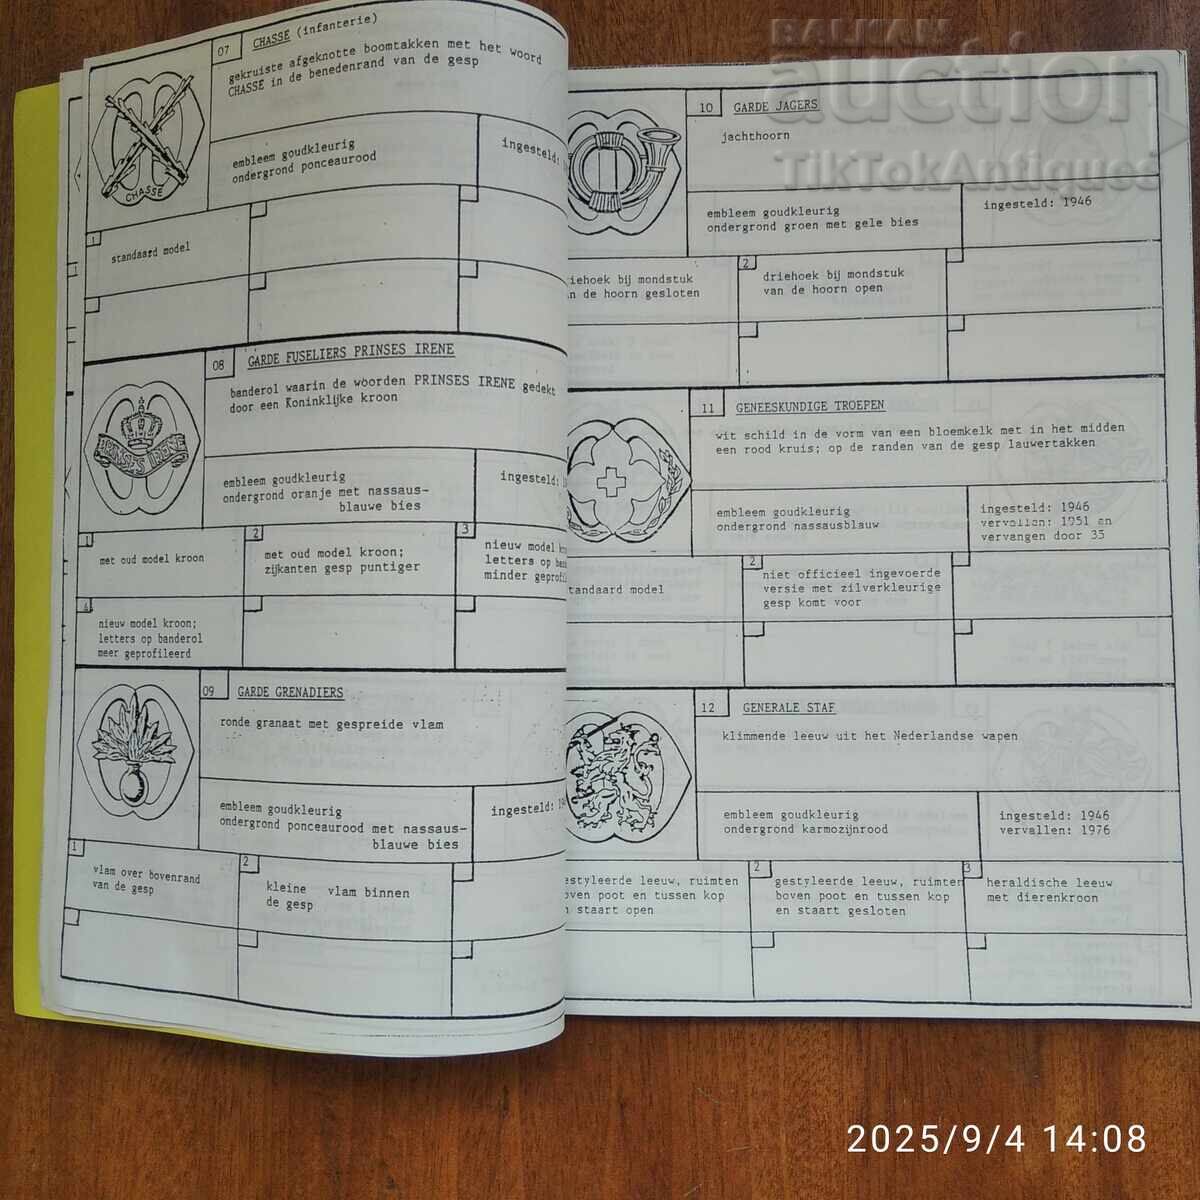 07
CHASSE (infanterie)
gekruiste afgeknotte boomtakken met het woord
CHASSE in de benedenrand van de gesp
CHASSE
embleem goudkleurig
ondergrond ponceaurood
ingesteld:
1
standaard model
08
GARDE FUSELIERS PRINSES IRENE
banderol waarin de woorden PRINSES IRENE gedekt
door een Koninklijke kroon
PRINSES IRENE
embleem goudkleurig
ondergrond oranje met nassaus-
blauwe bies
ingesteld:
1
met oud model kroon
2
met oud model kroon;
zijkanten gesp puntiger
3
nieuw model
letters op
minder geprofil
4
nieuw model kroon;
letters op banderol
meer geprofileerd
09
GARDE GRENADIERS
ronde granaat met gespreide vlam
embleem goudkleurig
ondergrond ponceaurood met nassaus-
blauwe bies
ingesteld:
1
vlam over bovenrand
van de gesp
2
kleine vlam binnen
de gesp
10
GARDE JAGERS
jachthoorn
embleem goudkleurig
ondergrond groen met gele bies
ingesteld: 1946
riehoek bij mondstuk
n de hoorn gesloten
2
driehoek bij mondstuk
van de hoorn open
11
GENEESKUNDIGE TROEPEN
wit schild in de vorm van een bloemkelk met in het midden
een rood kruis; op de randen van de gesp lauwertakken
embleem goudkleurig
ondergrond nassausblauw
ingesteld: 1946
vervallen: 1951 en
vervangen door 35
tandaard model
2
niet officieel ingevoerde
versie met zilverkleurige
gesp komt voor
12
GENERALE STAF
klimmende leeuw uit het Nederlandse wapen
embleem goudkleurig
ondergrond karmozijnrood
ingesteld: 1946
vervallen: 1976
estyleerde leeuw, ruimten
oven poot en tussen kop
n staart open
2
gestyleerde leeuw, ruimten
boven poot en tussen kop
en staart gesloten
3
heraldische leeuw
met dierenkroon
BALKAN
auction
TikTokAntiques
2025/9/4 14:08